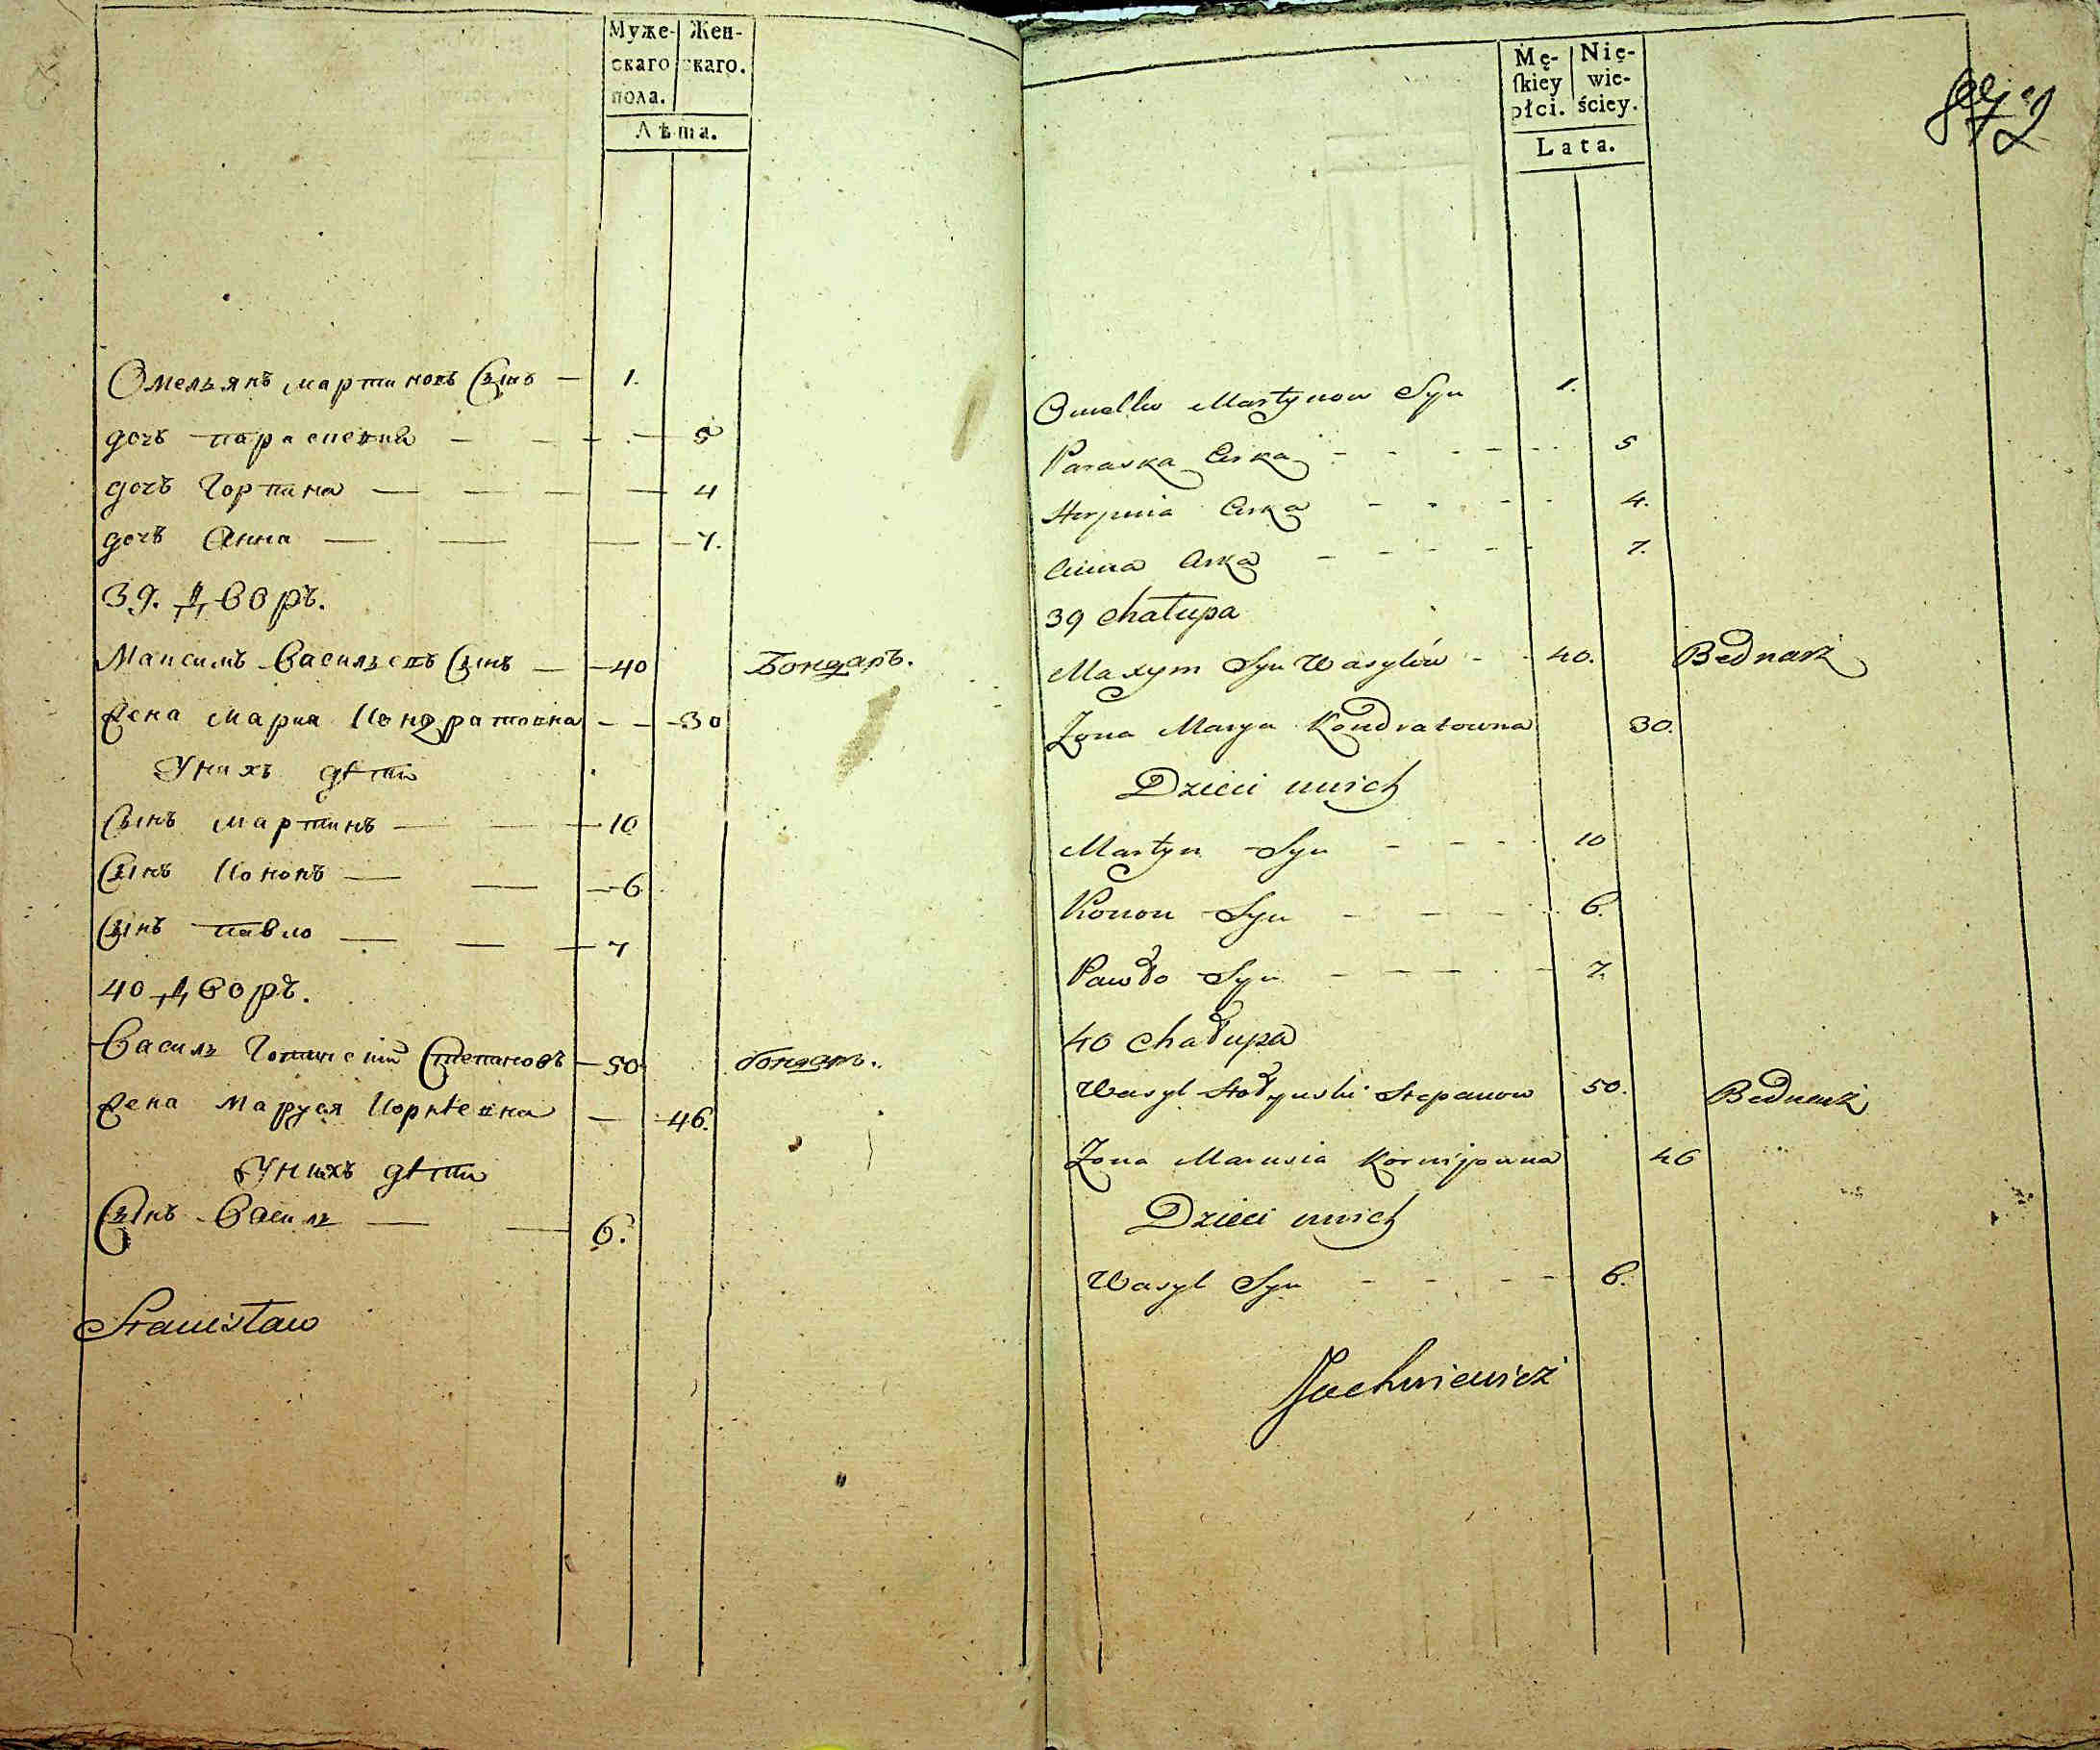 Муже- Жен-
скаго скаго.
пола.
Лѣта.
Омельянъ мартиновъ Сынъ — 1.
дочъ параскевия — 5
дочъ Горпина — 4
дочъ Анна — 7.
39. Дворъ.
Максимъ Васильевъ Сынъ — 40 Бондаръ.
Жена Мария Кондратовна — 30
У нихъ дѣти
Сынъ мартинъ — 10
Сынъ Кононъ — 6
Сынъ павло — 7
40 Дворъ.
Василь Степановъ — 50 бондаръ.
Жена Маруся Корнѣевна — 46.
У нихъ дѣти
Сынъ Василь — 6.
Stanisław
Mę- Nię-
ſkiey wie-
płci. ściey.
Lata.
Omelko Martynow Syn 1.
Paraska Curka - - - - 5
Horpina Curka - - - - 4.
Anna Curka - - - - 7.
39 Chałupa
Maxym Syn Wasylów - - 40. Bednarż
Zona Marya Kondratowna 30.
Dzieci unich
Martyn Syn - - - - 10
Konon Syn - - - - 6.
Pawło Syn - - - - 7.
40 Chałupa
Wasyl Stepanow 50. Bednarż
Zona Marusia Kornijowna 46
Dzieci unich
Wasyl Syn - - - - 6.
Jachniewicz